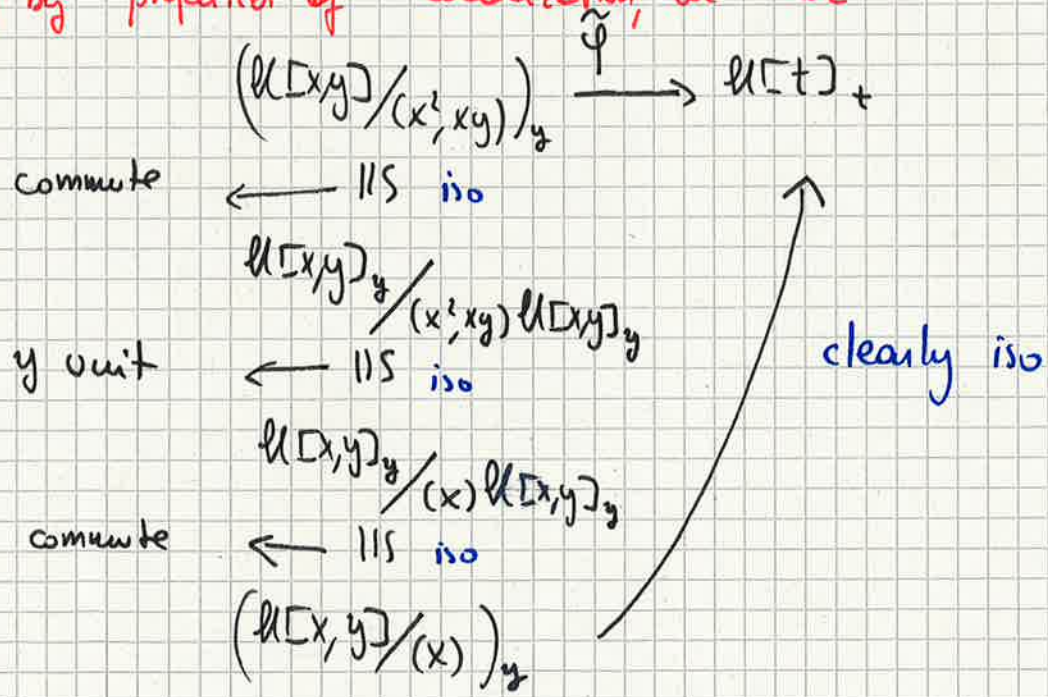 by properties of
(k[x,y]/(x², xy))_y  φ̃ →  k[t]_t
commute ← ||S iso
k[x,y]_y/(x², xy) k[x,y]_y
y unit ← ||S iso  clearly iso
k[x,y]_y/(x) k[x,y]_y
commute ← ||S iso
(k[x,y]/(x))_y